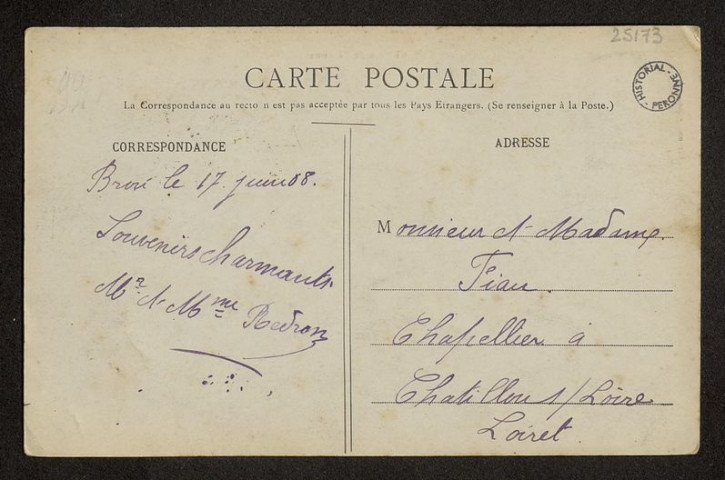 25173
HISTORIAL - PERONNE -
CARTE POSTALE
La Correspondance au recto n est pas acceptée par tous les Pays Etrangers. (Se renseigner à la Poste.)
CORRESPONDANCE
Brou le 17 juin 08.
Souvenirs charmants
Mr & Mme Redron
ADRESSE
Monsieur & Madame
Fiau.
Chapellier à
Chatillon s/Loire
Loiret.